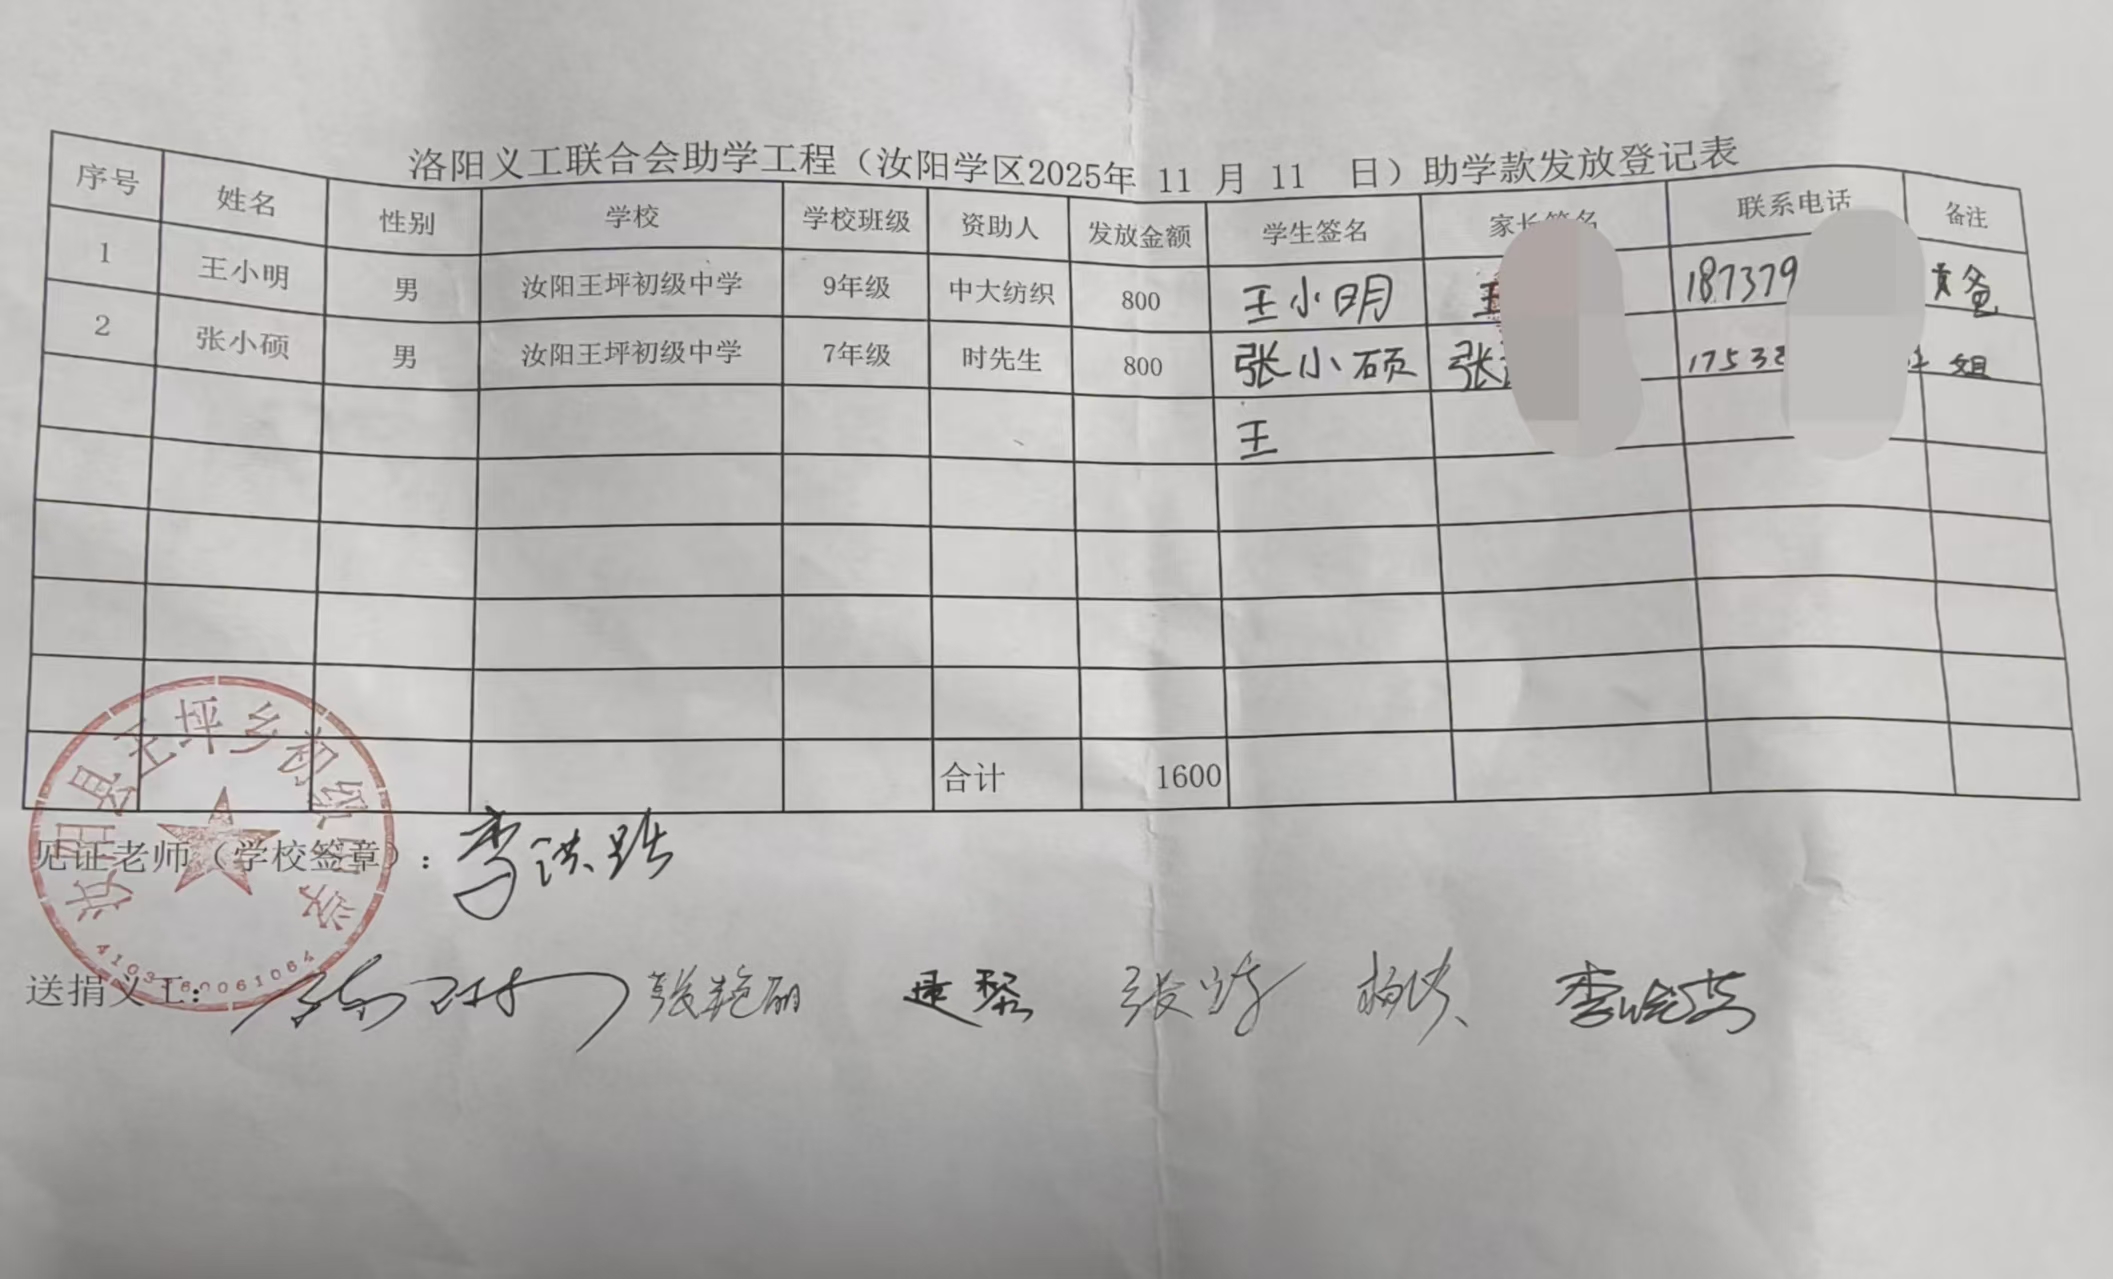 洛阳义工联合会助学工程（汝阳学区2025年 11 月 11 日）助学款发放登记表
序号 姓名 性别 学校 学校班级 资助人 发放金额 学生签名 家长签名 联系电话 备注
1 王小明 男 汝阳王坪初级中学 9年级 中大纺织 800 王小明 王 187379 爸
2 张小硕 男 汝阳王坪初级中学 7年级 时先生 800 张小硕 张 1753 姐
王
合计 1600
汝阳县王坪乡初级中学
见证老师（学校签章）：李
送捐义工： 张艳丽